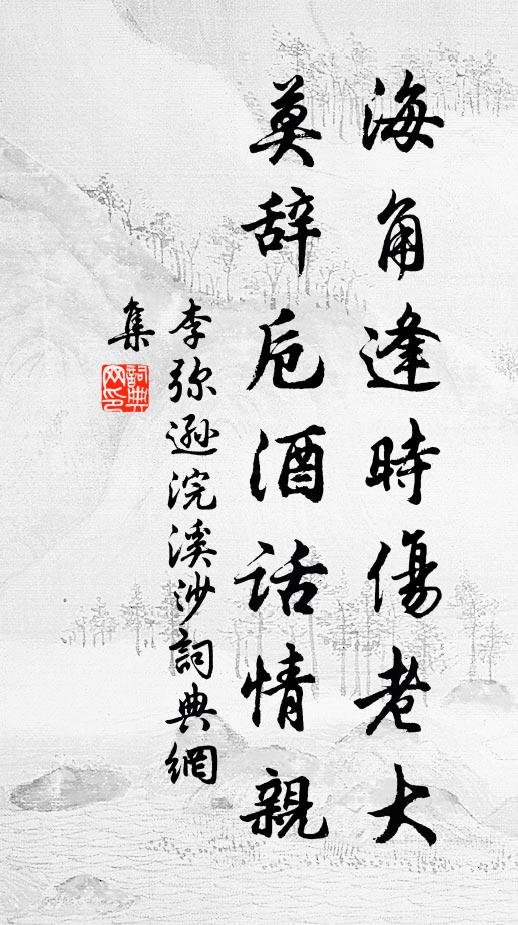 海角逢時傷老大
莫辞卮酒话情親
李弥遜浣溪沙詞典網
集
詞典网印